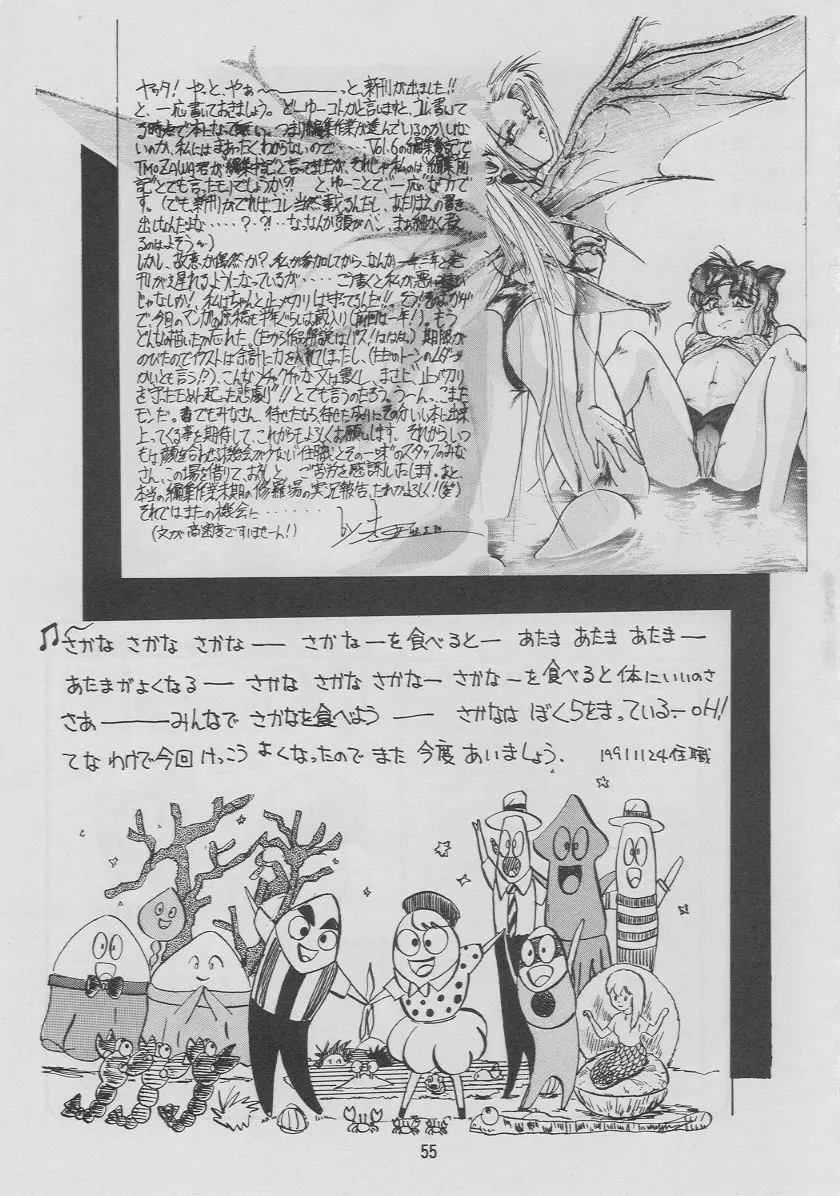 ヤッタ! やっと、やぁ〜〜っと、新刊が出ました!!
と、一応書いておきましょう。どーゆーコトかと言いますと、コレ書いて
る時点で本になって無い。つまり編集作業が進んでいるのかいない
のか、私にはまぁったくわからないので・・・・・Vol.6の編集後記で
TMOZAWA君が編集中記と言ってましたが、それじゃ私のは“編集前
記”とでも言ったモノでしょうか?! とゆーことで、“一応”なワケで
す。(でも新刊がでれば、コレ当然載るんだし、あたりまえの書き
出しなんだよな・・・・・?・?!・・なんか頭がヘン、まぁ細かく考え
るのはよそう〜)
しかし、故意か偶然か?、私が参加してから、なんか一年に一年と発
刊が遅れるようになっているが・・・・こう書くと私が悪い
じゃないか!、私はちゃんと〆切りは
で、今回のマンガの原稿も半年ぐらいは蔵入り(前回は一年!)。もう
どんなの描いたか忘れた、(だから作品解説はパス!)期限が
のびたのでイラストは余計に力を入れてしまったし、
かいとも言う?)、こんなメチャクチャな文は書くし、まさに“〆切り
を守ったために起こった悲劇”!!とでも言うのだろう。うーん、こまった
モンだ。でもみなさん、待せたなら、待せたなりにそのかいい本に出来
上ってくる事を期待して、これからもよろしくお願いします。それから、いつ
もは顔を合わせる機会がない“住職とその一味”のスタッフのみな
さん、この場を借りて、お礼と、ご苦労を感謝いたします。あと、
本当の編集作業末期の修羅場の実況報告、たれかよろしく!(笑)
それではまたの機会に・・・・・・・・
(文が高密度ですいませーん!)
by
♫〜さかな さかな さかなー さかなーを食べるとー あたま あたま あたまー
あたまがよくなるー さかな さかな さかなー さかなーを食べると体にいいのさ
さあーーみんなで さかなを食べようー さかなは ぼくらをまっているーOH!
てな わけで今回 けっこう よくなったので また 今度 あいましょう. 19911124住職
55